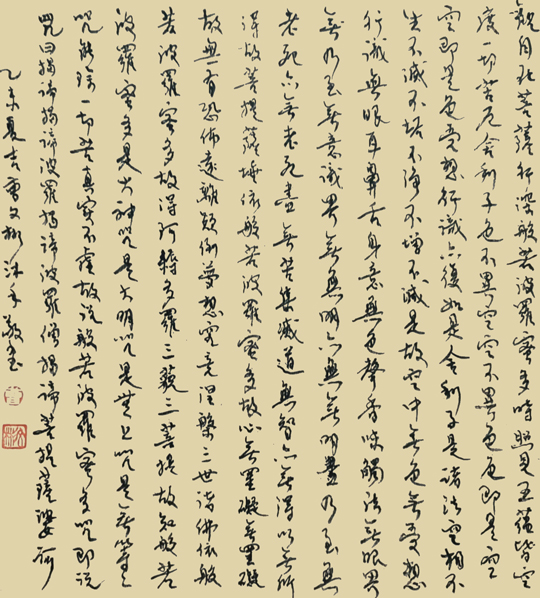 觀自在菩薩行深般若波羅蜜多時照見五蘊皆空
度一切苦厄舍利子色不異空空不異色色即是空
空即是色受想行識亦復如是舍利子是諸法空相不
生不滅不垢不淨不增不減是故空中無色無受想
行識無眼耳鼻舌身意無色聲香味觸法無眼界
無乃至無意識界無無明亦無無明盡乃至無
老死亦無老死盡無苦集滅道無智亦無得以無所
得故菩提薩埵依般若波羅蜜多故心無罣礙無罣礙
故無有恐怖遠離顛倒夢想究竟涅槃三世諸佛依般
若波羅蜜多故得阿耨多羅三藐三菩提故知般若
波羅蜜多是大神咒是大明咒是無上咒是無等等
咒能除一切苦真實不虛故說般若波羅蜜多咒即說
咒曰揭諦揭諦波羅揭諦波羅僧揭諦菩提薩婆訶
乙未夏吉沐手敬書